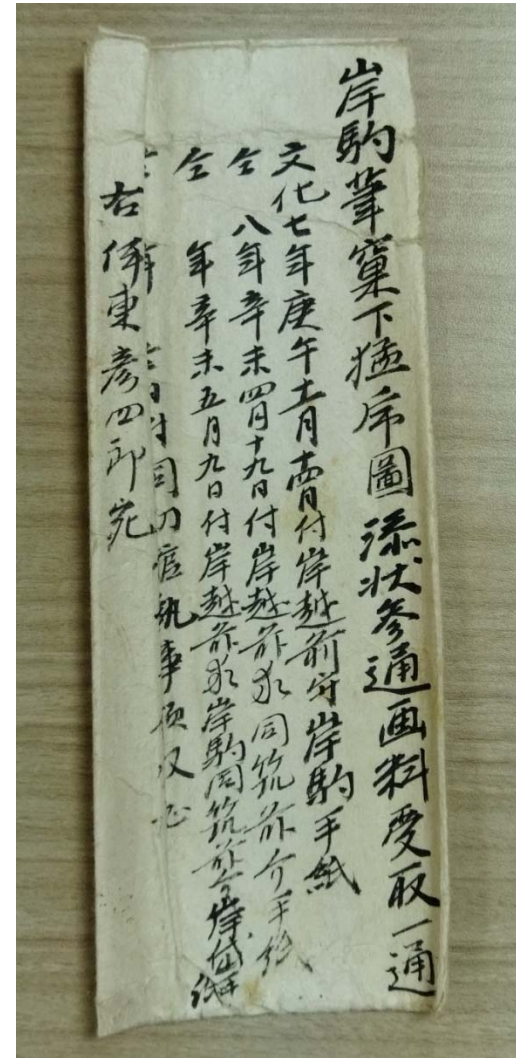 岸駒筆窠下猛虎圖添状参通画料受取一通
文化七年庚午十一月十四日付岸越前守岸駒手紙
仝八年辛未四月十九日付岸越前永同筑前介手紙
仝年辛未五月九日付岸越前永岸駒同筑前介岸岱手紙
仝年仝日付同刀官執事領収書
右伊東彦四郎宛